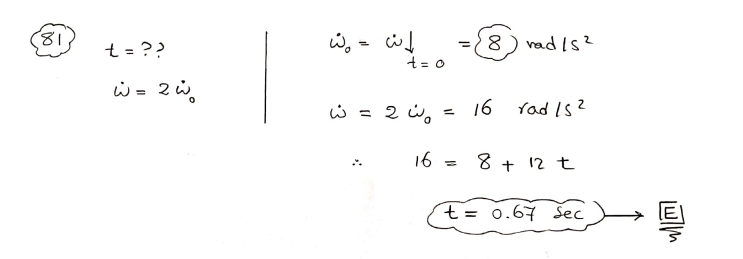 81
t = ??
ω̇ = 2 ω̇₀
ω̇₀ = ω̇↓ t=0 = 8 rad/s²
ω̇ = 2 ω̇₀ = 16 rad/s²
∴ 16 = 8 + 12 t
t = 0.67 Sec → E